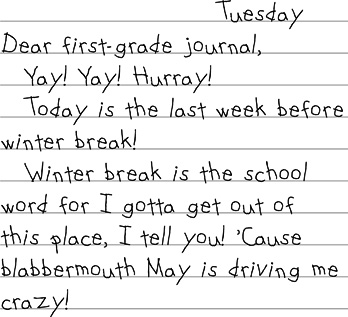 Tuesday
Dear first-grade journal,
Yay! Yay! Hurray!
Today is the last week before
winter break!
Winter break is the school
word for I gotta get out of
this place, I tell you! ’Cause
blabbermouth May is driving me
crazy!